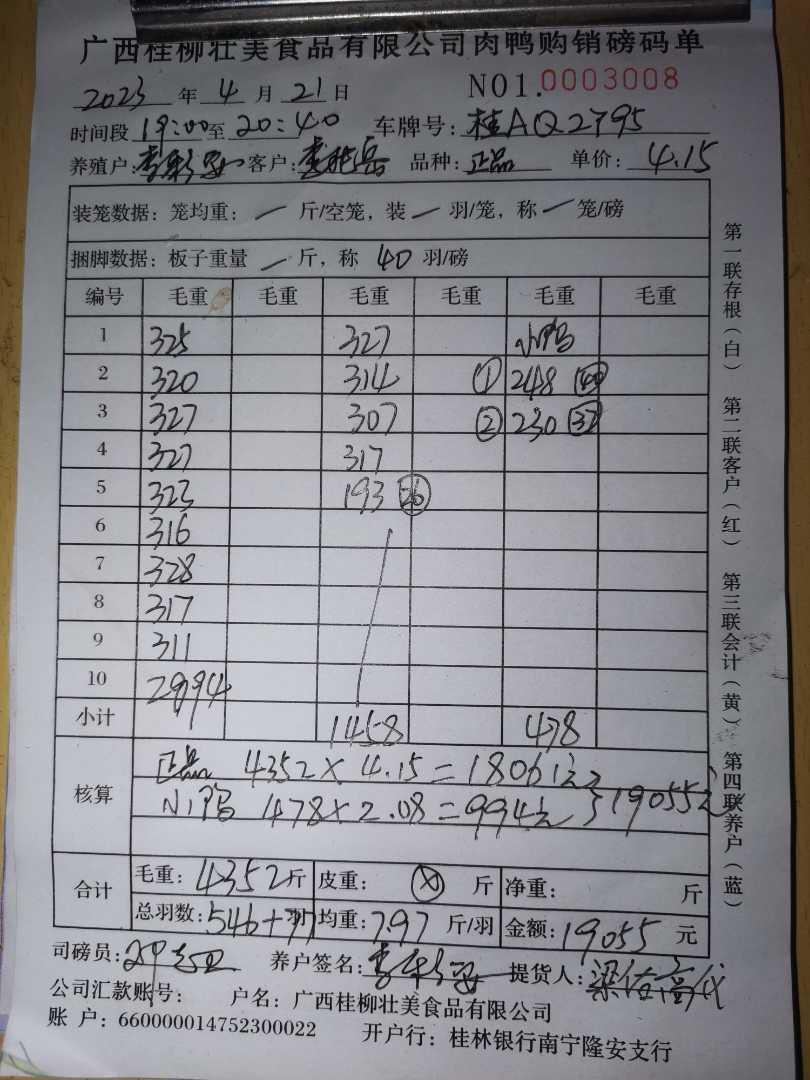 广西桂柳壮美食品有限公司肉鸭购销磅码单
2023 年 4 月 21 日 NO1.0003008
时间段 19:00 至 20:40 车牌号: 桂AQ2795
养殖户: 客户: 品种: 正品 单价: 4.15
装笼数据: 笼均重: 一 斤/空笼, 装 一 羽/笼, 称 一 笼/磅
捆脚数据: 板子重量 一 斤, 称 40 羽/磅
编号 毛重 毛重 毛重 毛重 毛重 毛重
1 325 327 小鸭
2 320 314 ① 248 40
3 327 307 ② 230 37
4 327 317
5 323 193 26
6 316
7 328
8 317
9 311
10 2894
小计 1458 478
核算 正品 4352×4.15=18061元
小鸭 478×2.08=994元 } 19055元
合计 毛重: 4352 斤 皮重: 斤 净重: 斤
总羽数: 546+77 羽 均重: 7.97 斤/羽 金额: 19055 元
司磅员: 养户签名: 提货人:
公司汇款账号: 户名: 广西桂柳壮美食品有限公司
账 户: 660000014752300022 开户行: 桂林银行南宁隆安支行
第一联存根(白) 第二联客户(红) 第三联会计(黄) 第四联养户(蓝)